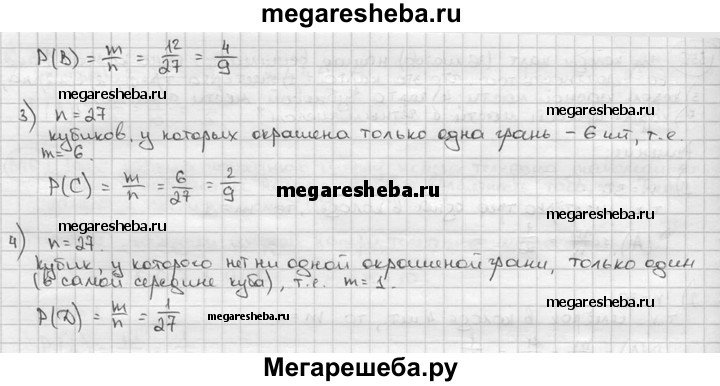 megaresheba.ru
P(B) = m/n = 12/27 = 4/9
megaresheba.ru
3) n = 27
megaresheba.ru
кубиков, у которых окрашена только одна грань – 6 шт, т.е.
m = 6.
P(C) = m/n = 6/27 = 2/9
megaresheba.ru
megaresheba.ru
4) n = 27.
megaresheba.ru
кубик, у которого нет ни одной окрашеной грани, только один
(в самой середине куба), т.е. m = 1.
P(D) = m/n = 1/27
megaresheba.ru
megaresheba.ru
Мегарешеба.ру